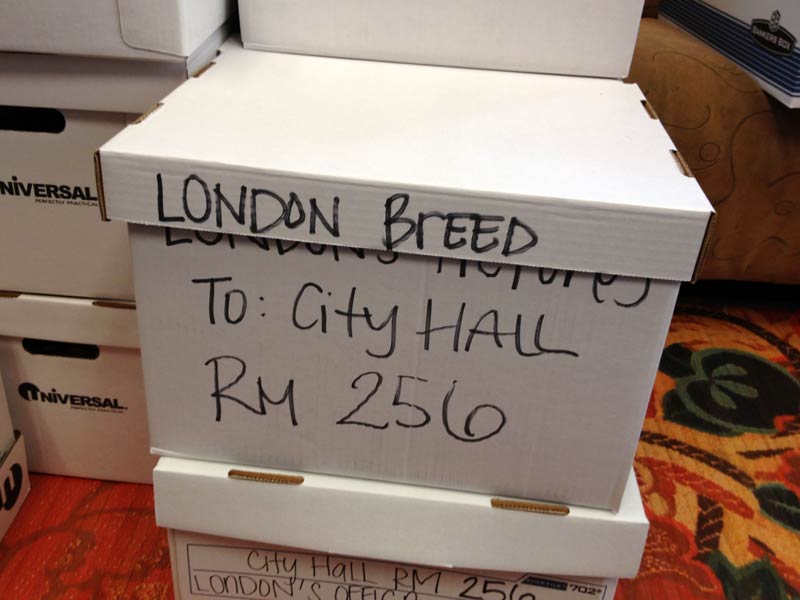 BANKERS BOX
UNIVERSAL
PERFECTLY PRACTICAL
LONDON BrEED
LONDON'S PICTUrES
To: City HALL
RM 256
UNIVERSAL
PERFECTLY PRACTICAL
City Hall RM 256
LONDON'S OFFICE
702